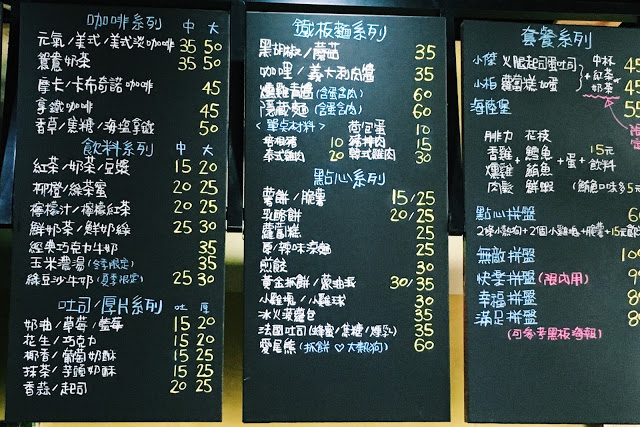 咖啡系列 中 大
元氣/美式/美式淡咖啡 35 50
鴛鴦奶茶 35 50
摩卡/卡布奇諾咖啡 45
拿鐵咖啡 45
香草/焦糖/海鹽拿鐵 50
飲料系列 中 大
紅茶/奶茶/豆漿 15 20
柳橙/綠茶蜜 20 25
檸檬汁/檸檬紅茶 20 25
鮮奶茶/鮮奶綠 25 30
經典巧克力牛奶 35
玉米濃湯(冬季限定) 35
綠豆沙牛奶(夏季限定) 25 30
吐司/厚片系列 吐 厚
奶油/草莓/藍莓 15 20
花生/巧克力 15 20
椰香/葡萄奶酥 15 25
抹茶/芋頭奶酥 15 25
香蒜/起司 20 25
鐵板麵系列
黑胡椒/蘑菇 35
咖哩/義大利肉醬 35
燻雞青醬(含蛋含肉) 60
隱藏麵(含蛋含肉) 60
<單點材料> 荷包蛋 10
培根豬 10 豬排肉 15
泰式雞肉 20 韓式雞肉 30
點心系列
薯餅/脆薯 15/25
乳酪餅 20/25
蘿蔔糕 25
原/辣味湯麵 25
煎餃 30
黃金抓餅/蔥油派 30/35
小雞塊/小雞球 30
冰火菠蘿包 35
法國吐司(蜂蜜/焦糖/煉乳) 35
愛尾熊(抓餅♡大熱狗) 60
套餐系列
小傑 火腿起司蛋吐司 中杯 45
小柏 蘿蔔糕加蛋 + 紅茶 奶茶 45
海陸堡 55
腓力 花枝
香雞 鱈魚 15元
燻雞 + 鮪魚 + 蛋 + 飲料
肉鬆 鮮蝦 (鮪魚口味多5元
點心拼盤
2條小熱狗+2個小雞塊+脆薯+15元
無敵拼盤
快樂拼盤(限內用)
幸福拼盤
滿足拼盤
(可參考黑板海報)